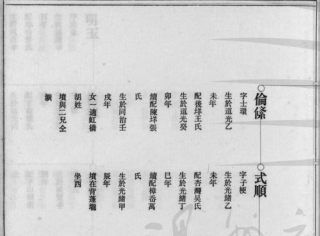 倫絛
字士環
生於道光乙
未年
配後垟王氏
生於道光癸
卯年
續配陳垟張
氏
生於同治壬
戌年
女一適虹橋
胡姓
墳與二兄仝
壙
式順
字子梗
生於光緒乙
未年
配杏灣吳氏
生於光緒丁
巳年
續配樟岙萬
氏
生於光緒甲
辰年
墳在青蓬堰
坐西